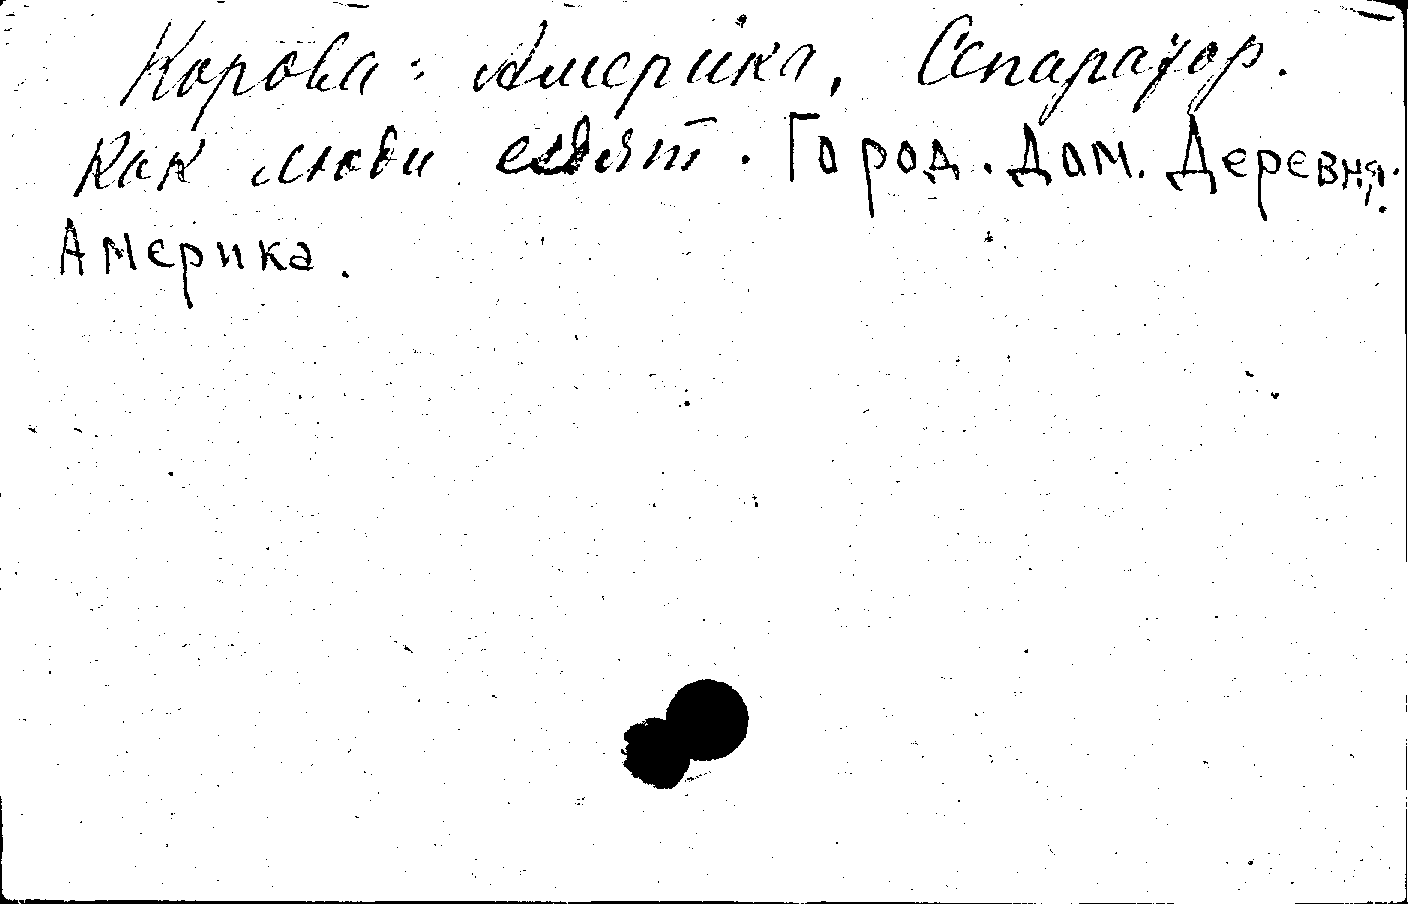 Корова: Америка, Сепаратор.
Как люди едят. Город. Дом. Деревня.
Америка.